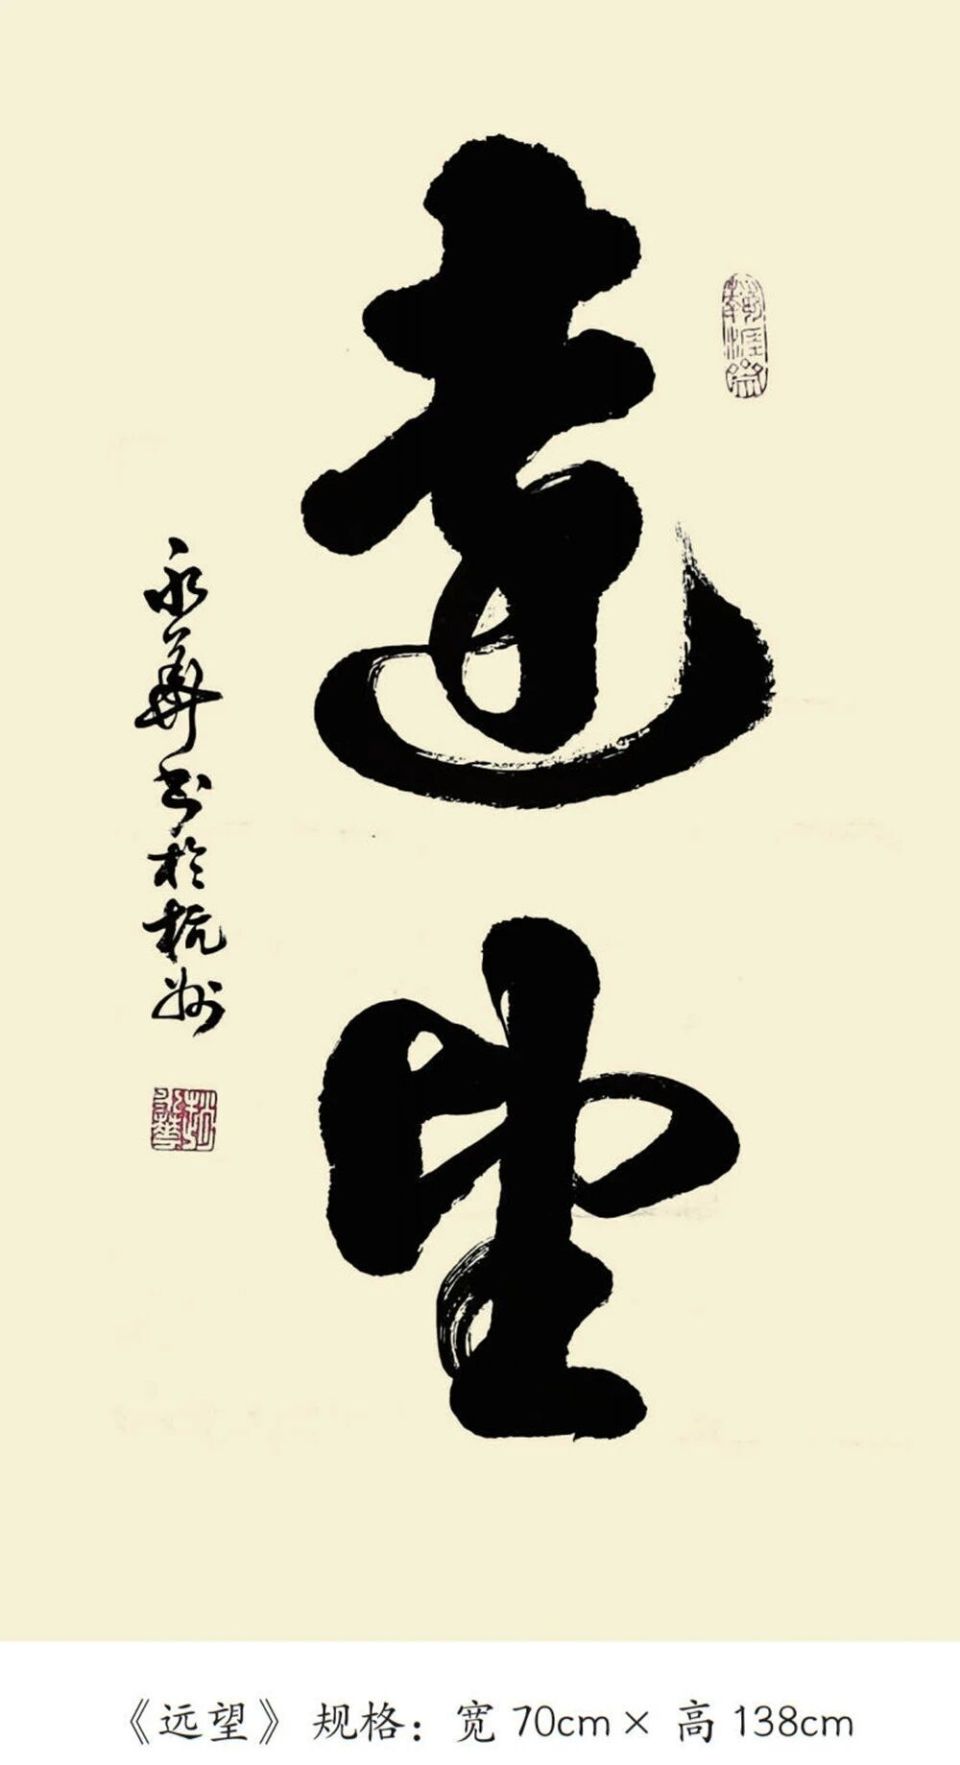 遠望
永華书於杭州
《远望》 规格：宽 70cm × 高 138cm